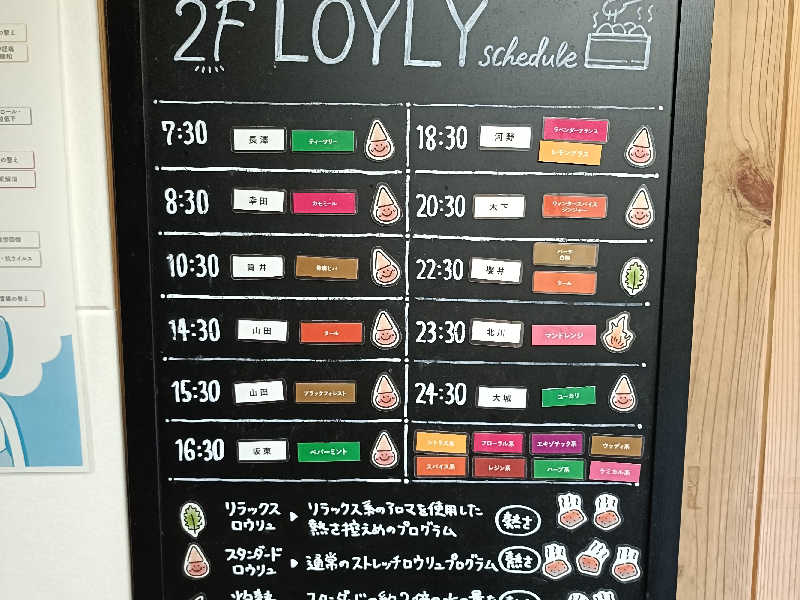 2F LOYLY schedule
7:30 長澤 ティーツリー
8:30 幸田 カモミール
10:30 筒井
14:30 山田 タール
15:30 山田 ブラックフォレスト
16:30 坂東 ペパーミント
18:30 河野 ラベンダーフランス
レモングラス
20:30 木下 ウィンタースパイス
ジンジャー
22:30 櫻井 バーチ
白樺
タール
23:30 北川 マンドレンジ
24:30 大城 ユーカリ
シトラス系 フローラル系 エキゾチック系 ウッディ系
スパイス系 レジン系 ハーブ系 ケミカル系
リラックス
ロウリュ
リラックス系のアロマを使用した
熱さ控えめのプログラム
熱さ
スタンダード
ロウリュ
通常のストレッチロウリュプログラム
熱さ